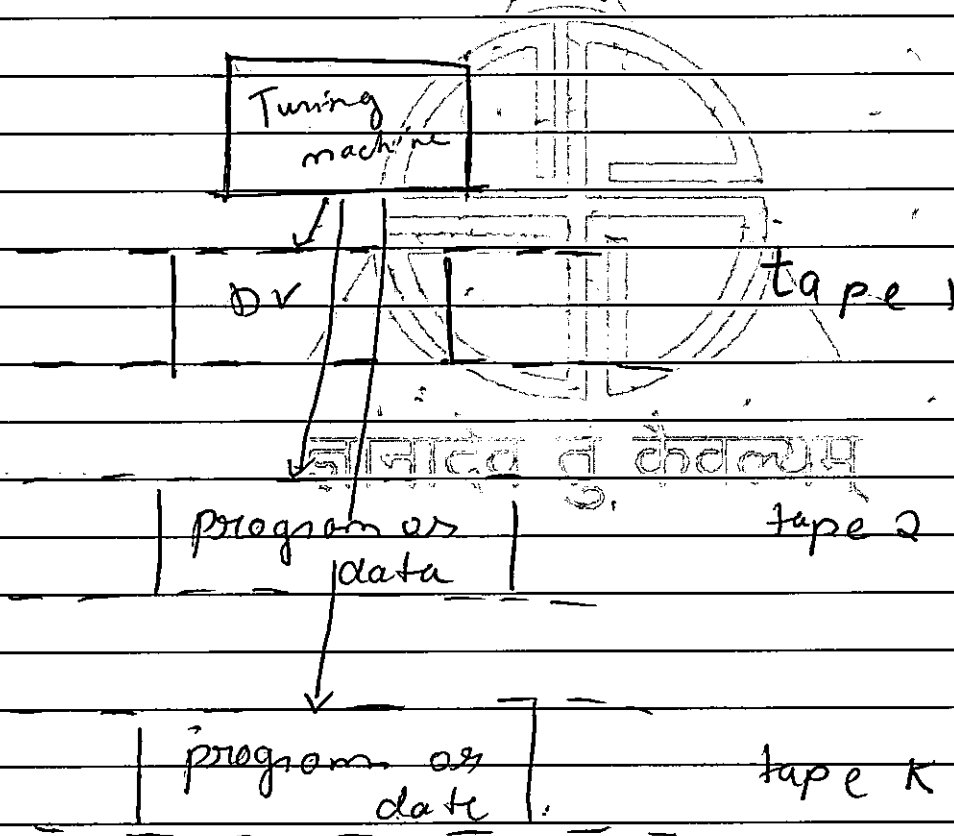 Turing
machine
DV
tape 1
ज्ञानादेव तु कैवल्यम्
program as
data
tape 2
program as
date
tape K